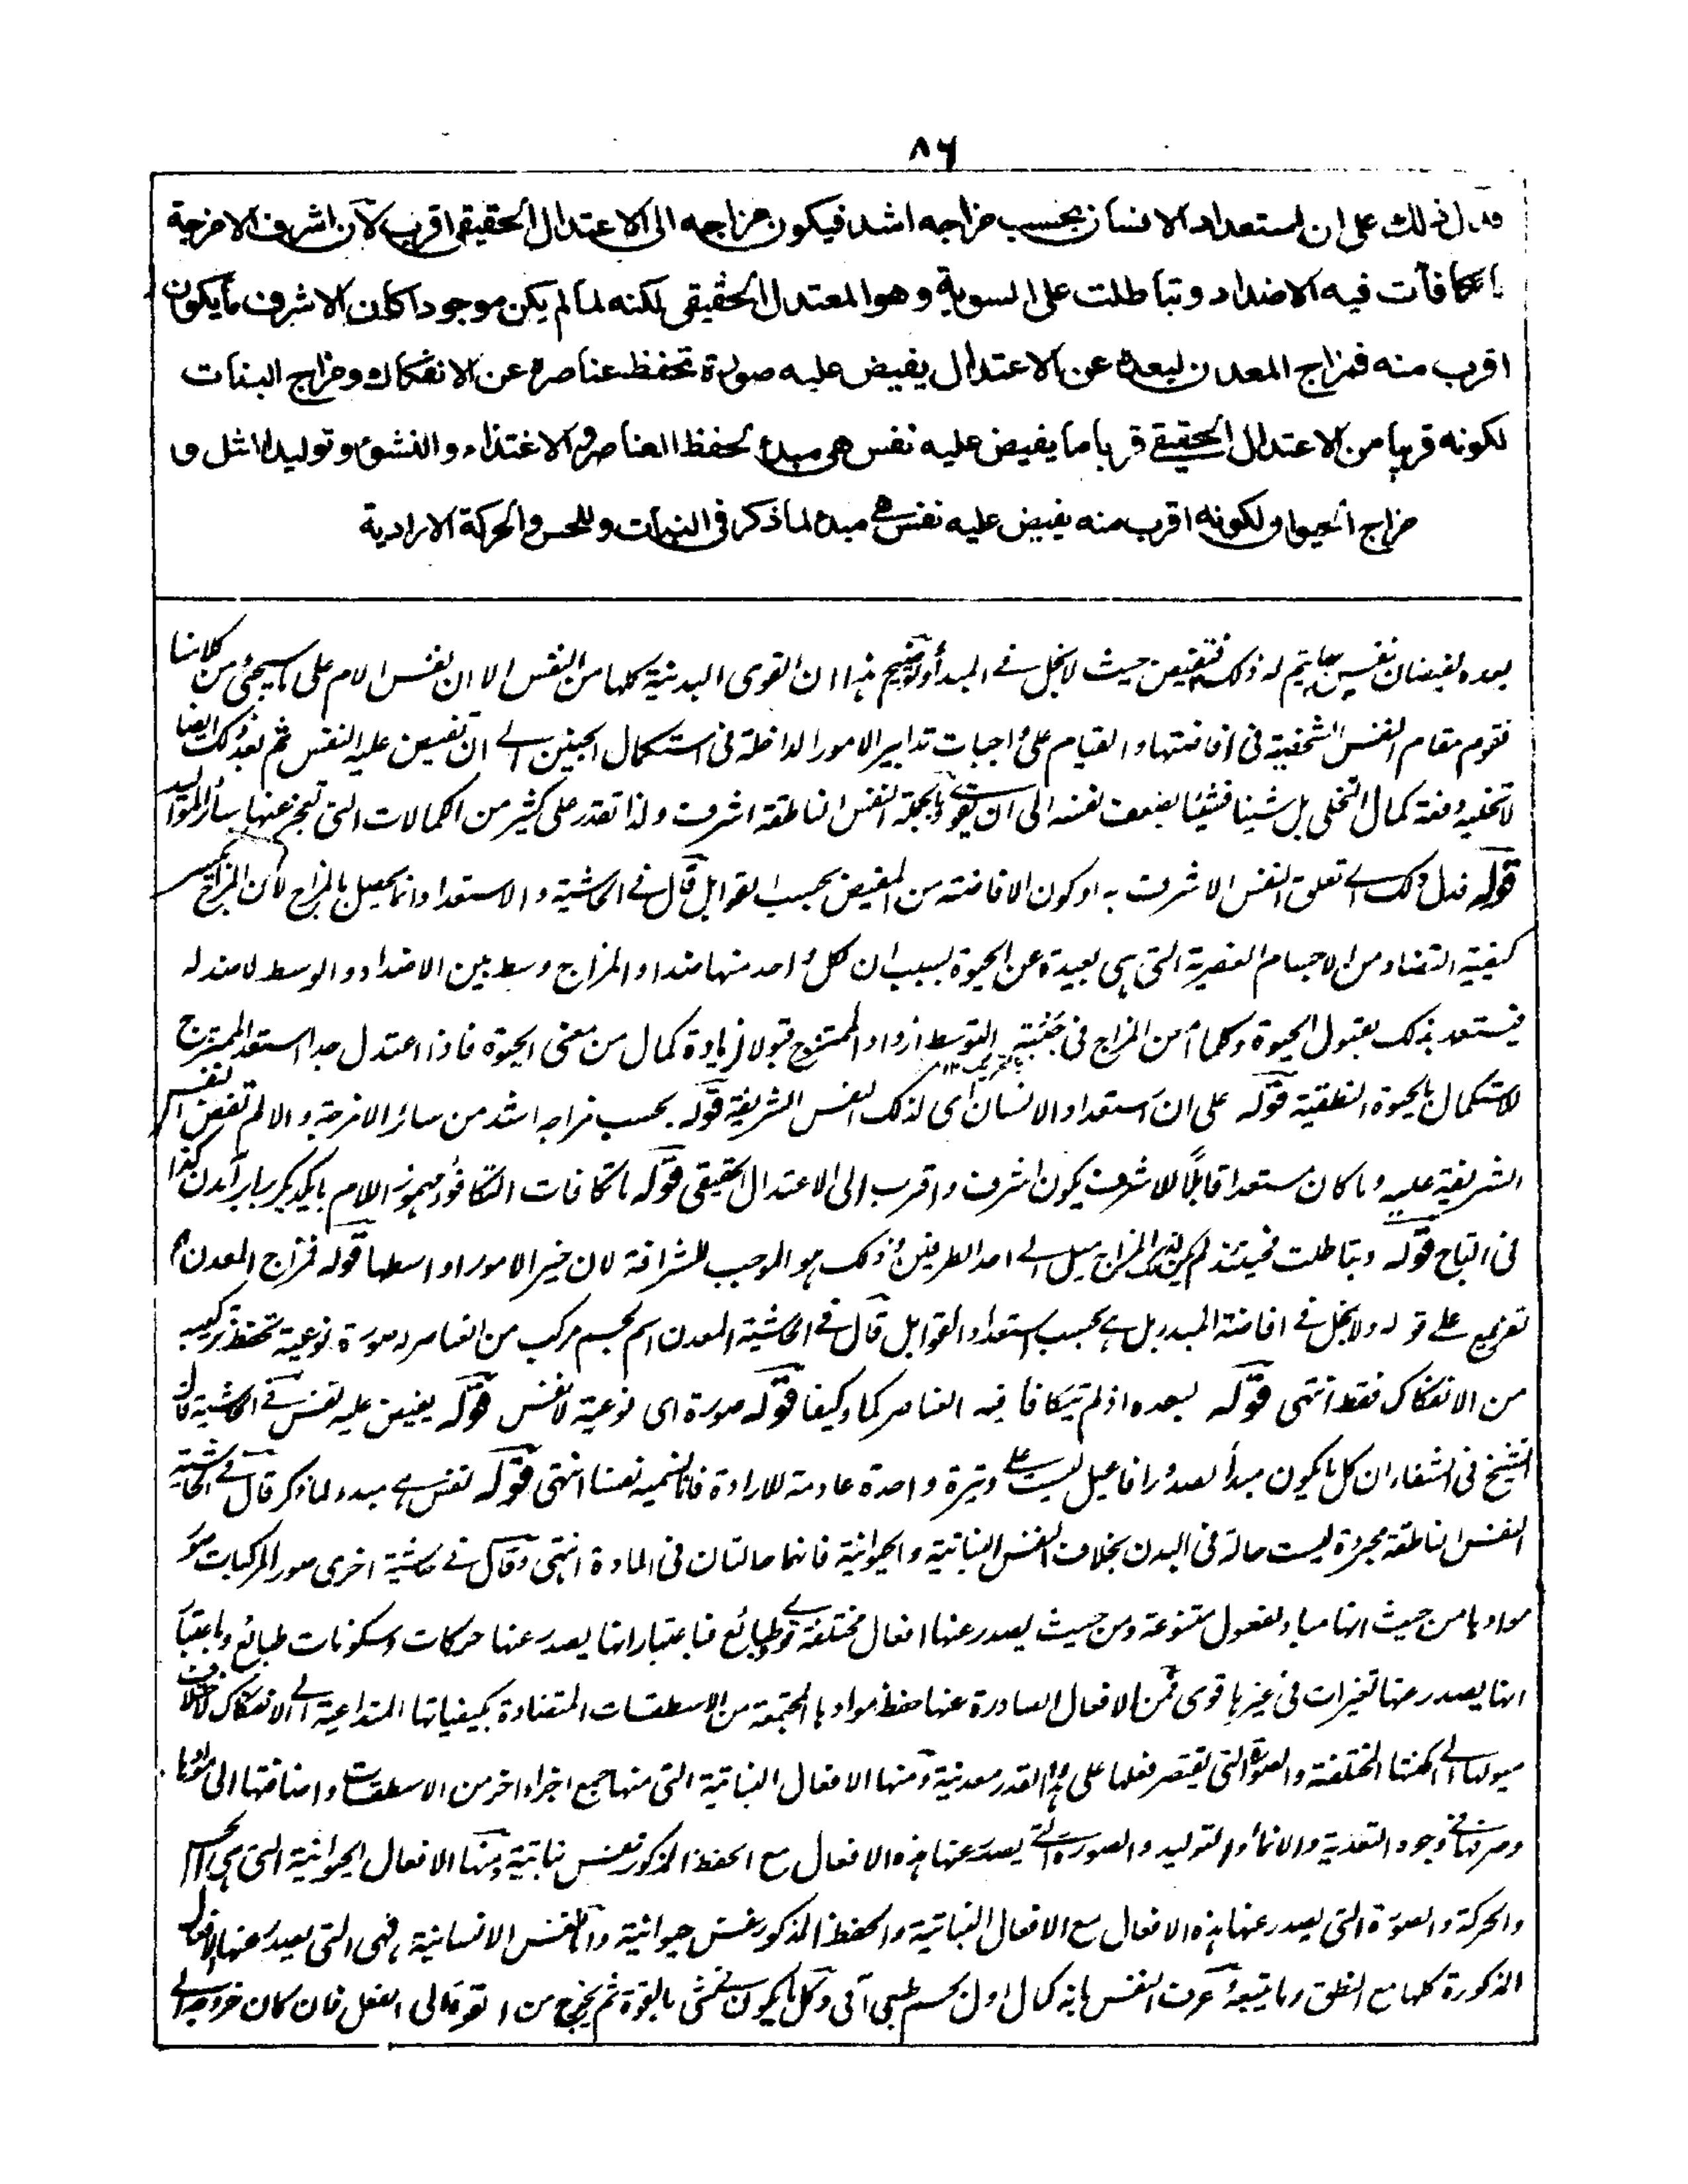 ٨٦
فدل ذلك على ان استعداد الانسان بحسب مزاجه اشد فيكون مزاجه الى الاعتدال الحقيقى اقرب لان اشرف الامزجة
ما تكافأت فيه الاضداد وتباطلت على السوية وهو المعتدل الحقيقى لكنه لما لم يكن موجودا كان الاشرف ما يكون
اقرب منه فمزاج المعدن لبعده عن الاعتدال يفيض عليه صورة تحفظ عناصره عن الانفكاك ومزاج النبات
لكونه قريبا من الاعتدال الحقيقے قربا ما يفيض عليه نفس هى مبدء لحفظ العناصر والاغتذاء والنشو وتوليد المثل و
مزاج الحيوان لكونه اقرب منه يفيض عليه نفس هے مبدء لما ذكر فى النبات وللحس والحركة الارادية
بعده لفيضان نفس بها يتم له ذلك فتفيض حيث لا بخل فے المبدأ وتوضيح هذا ان القوى البدنية كلها من النفس الا ان نفس الام على ما سيجئ من كلامنا
تقوم مقام النفس الشخصية فى افاضتها والقيام على واجبات تدابير الامور الداخلة فى استكمال الجنين الے ان تفيض عليه النفس ثم بعد ذلك ايضا
لا تخليه دفعة كمال التخلى بل شيئا فشيئا لضعف نفسه الى ان تقوے وبالجملة النفس الناطقة اشرف ولذا تقدر على كثير من الكمالات التى تعجز عنها سائر المواليد
قوله فدل ذلك اے تعلق النفس الاشرف به او كون الافاضة من المفيض بحسب القوابل قال فے الحاشية والاستعداد انما يحصل بالمزاج لان المزاج يكسر
كيفية التضاد من الاجسام العنصرية التى هى بعيدة عن الحيوة بسبب ان كل واحد منها ضد والمزاج وسط بين الاضداد والوسط لا ضد له
فيستعد بذلك لقبول الحيوة وكلما امعن المزاج فى جنبة التوسط ازداد الممتزج قبولا لزيادة كمال من معنى الحيوة فاذا اعتدل جدا استعد الممتزج
للاستكمال بالحيوة النطقية قوله على ان استعداد الانسان اى لذلك النفس الشريفة قوله بحسب مزاجه اشد من سائر الامزجة والا لم تفض النفس
الشريفة عليه وما كان مستعدا قابلا للاشرف يكون اشرف واقرب الى الاعتدال الحقيقى قوله ما تكافات التكافؤ مهموز اللام بايكديگر برابر آمدن كذا
فى التاج قوله وتباطلت فحينئذ لم يكن لذلك المزاج ميل الے احد الطرفين وذلك هو الموجب للشرافة لان خير الامور اواسطها قوله فمزاج المعدن
تفريع على قوله ولا بخل فے افاضة المبدء بل هے بحسب استعداد القوابل قال فے الحاشية المعدن اسم لجسم مركب من العناصر له صورة نوعية تحفظ تركيبه
من الانفكاك فقط انتهى قوله لبعده اذ لم يتكافا فيه العناصر كما وكيفا قوله صورة اى نوعية لا نفس قوله يفيض عليه نفس فے الحاشية قال
الشيخ فى الشفاء ان كل ما يكون مبدأ لصدور افاعيل ليست على وتيرة واحدة عادمة للارادة فانا نسميه نفسا انتهى قوله نفس هے مبدء لما ذكر قال فے الحاشية
النفس الناطقة مجردة ليست حالة فى البدن بخلاف النفس النباتية والحيوانية فانهما حالتان فى المادة انتهى وقال فے حاشية اخرى صور المركبات صور
موادها من حيث انها مباد لفصول متنوعة ومن حيث يصدر عنها افعال مختلفة قوے وطبائع فباعتبار انها يصدر عنها حركات وسكونات طبائع وباعتبار
انها يصدر عنها تغيرات فى غيرها قوى فمن الافعال الصادرة عنها حفظ موادها المجتمعة من الاسطقسات المتضادة بكيفياتها المتداعية الے الانفكاك لاختلاف
ميولها الے امكنتها المختلفة والصورة التى يقتصر فعلها على هذا القدر معدنية ومنها الافعال النباتية التى منها جمع اجزاء اخر من الاسطقسات واضافتها الى موادها
وصرفها فے وجوه التغذية والانماء والتوليد والصورة التے يصدر عنها هذه الافعال مع الحفظ المذكور نفس نباتية ومنها الافعال الحيوانية التى هى الحس
والحركة والصورة التى يصدر عنها هذه الافعال مع الافعال النباتية والحفظ المذكور نفس حيوانية واما النفس الانسانية فهى التى يصدر عنها الافعال
المذكورة كلها مع النطق وما يتبعه عرف النفس بانه كمال اول لجسم طبيعى آلى وكل ما يكون فے شى بالقوة ثم يخرج من القوة الى الفعل فان كان خروجه الے